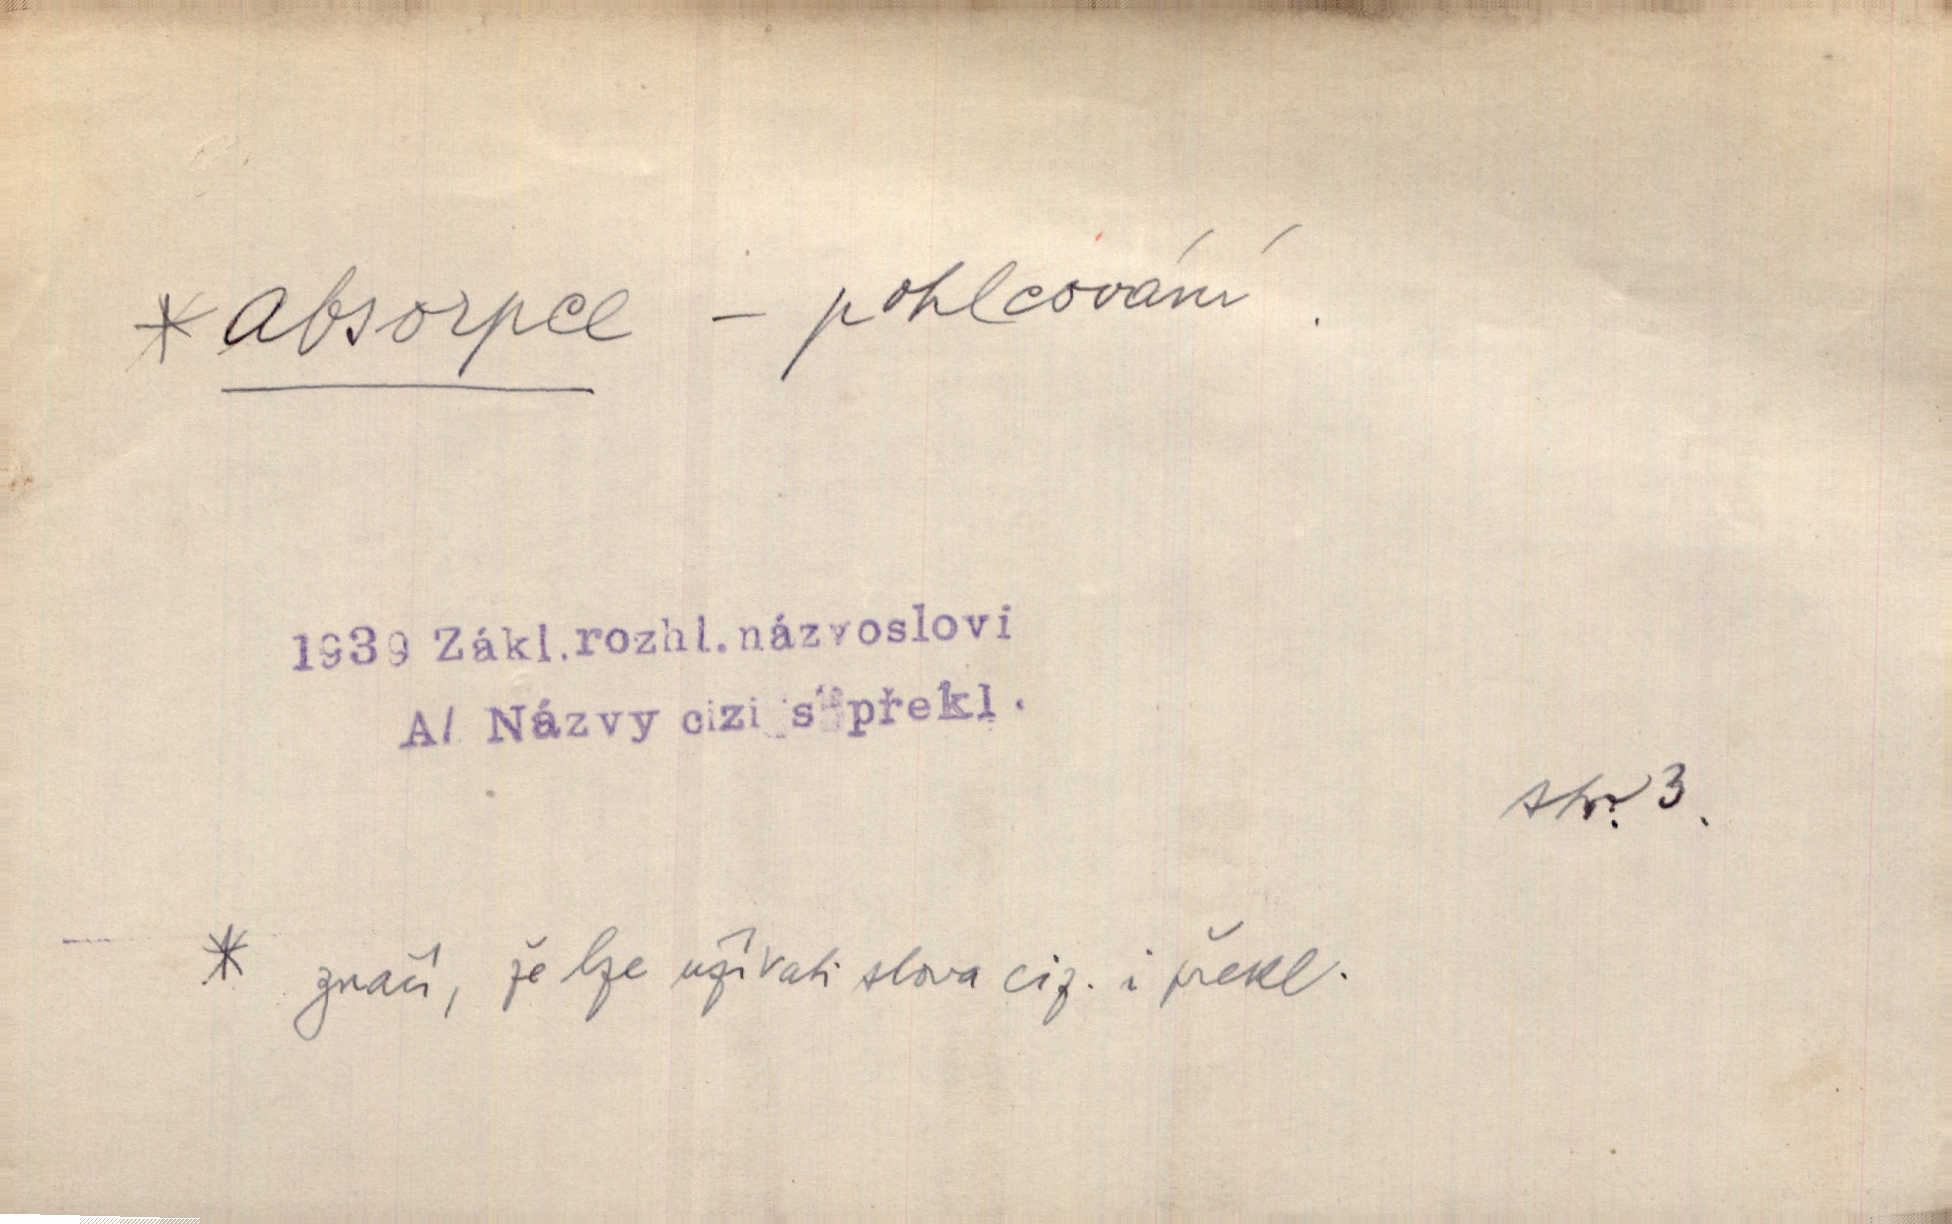 * absorpce – pohlcování.
1939 Zákl.rozhl.názvosloví
A/ Názvy cizi s překl.
str. 3.
* značí, že lze užívati slova ciz. i překl.